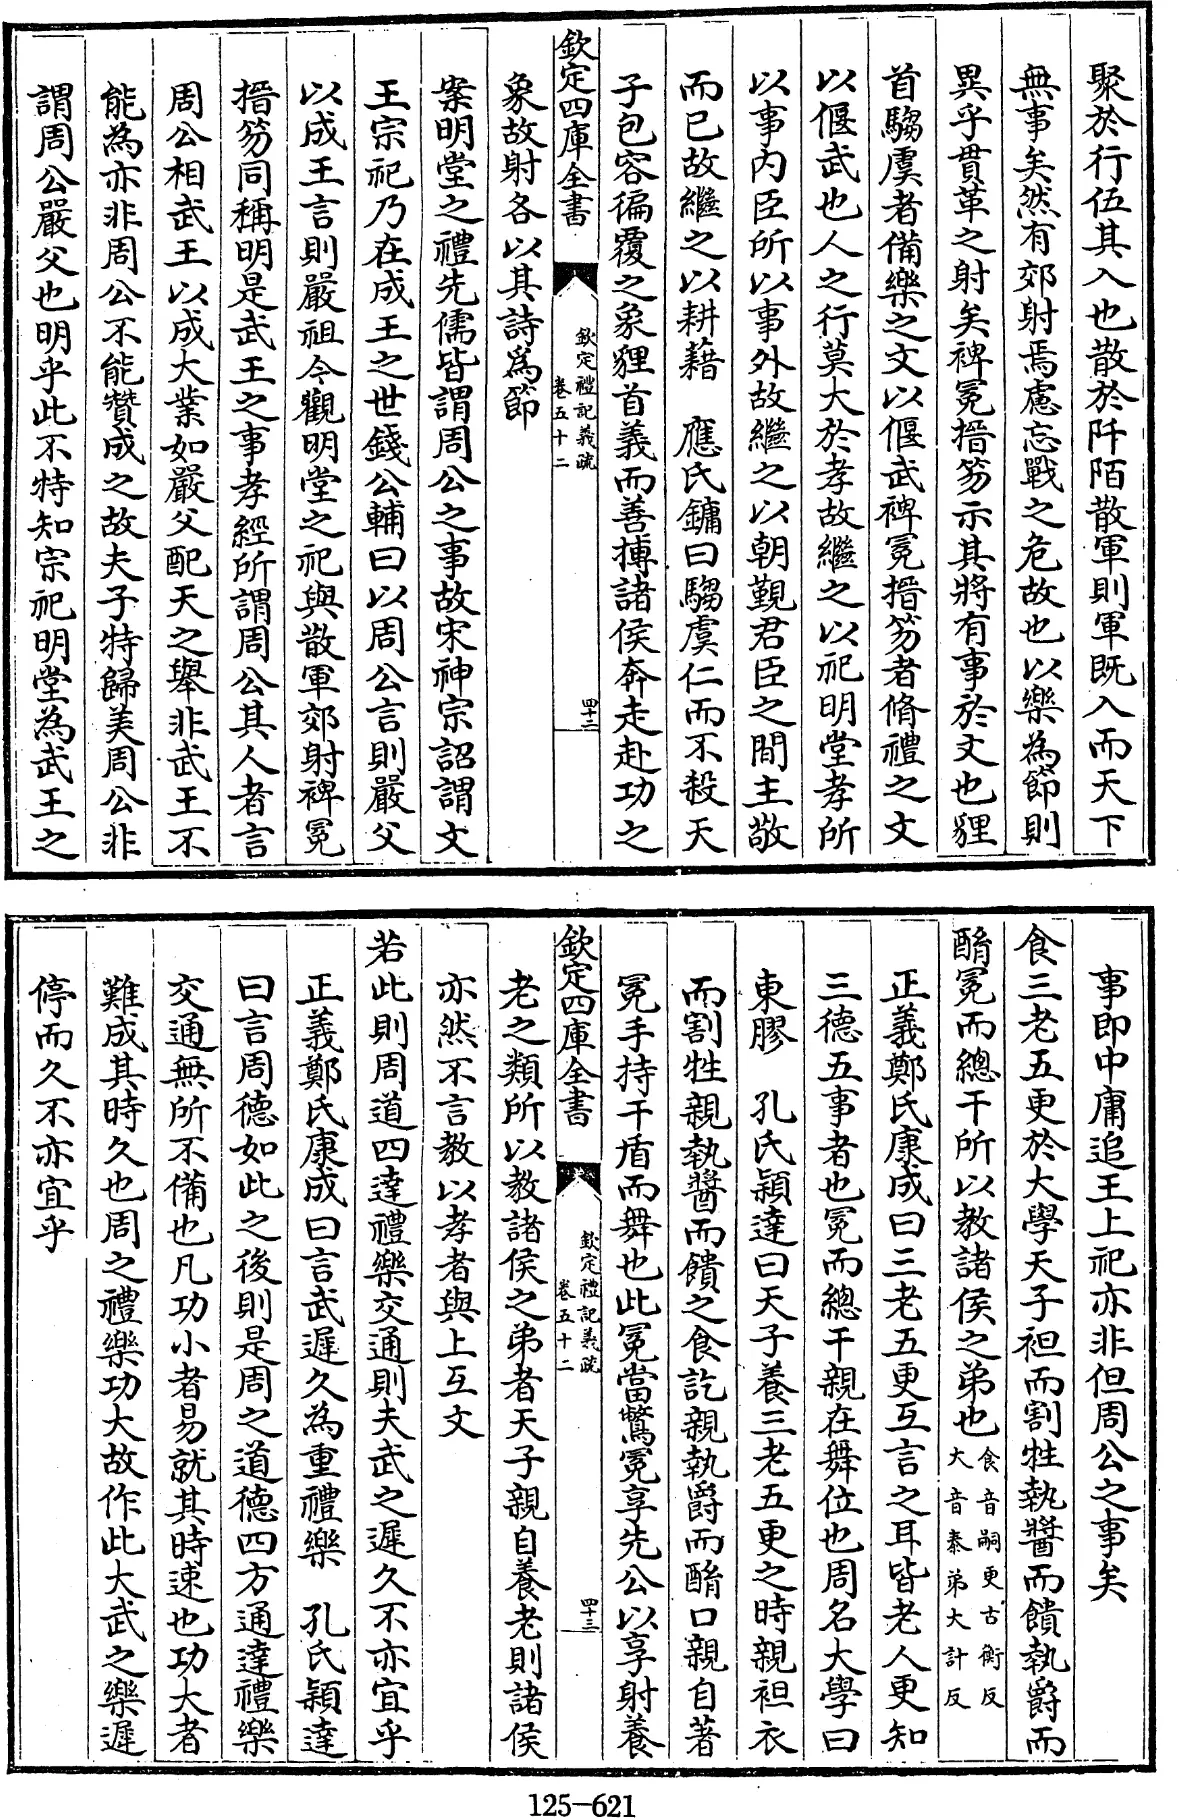 聚於行伍其入也散於阡陌散軍則軍既入而天下
無事矣然有郊射焉慮忘戰之危故也以樂為節則
異乎貫革之射矣裨冕搢笏示其將有事於文也貍
首騶虞者備樂之文以偃武裨冕搢笏者脩禮之文
以偃武也人之行莫大於孝故繼之以祀明堂孝所
以事内臣所以事外故繼之以朝覲君臣之間主敬
而已故繼之以耕藉　應氏鏞曰騶虞仁而不殺天
子包容徧覆之象貍首義而善搏諸侯奔走赴功之
欽定四庫全書
欽定禮記義疏
卷五十二
四十二
象故射各以其詩爲節
案明堂之禮先儒皆謂周公之事故宋神宗詔謂文
王宗祀乃在成王之世錢公輔曰以周公言則嚴父
以成王言則嚴祖今觀明堂之祀與散軍郊射裨冕
搢笏同稱明是武王之事孝經所謂周公其人者言
周公相武王以成大業如嚴父配天之舉非武王不
能為亦非周公不能贊成之故夫子特歸美周公非
謂周公嚴父也明乎此不特知宗祀明堂為武王之
事即中庸追王上祀亦非但周公之事矣
食三老五更於大學天子袒而割牲執醬而饋執爵而
酳冕而總干所以教諸侯之弟也食音嗣更古衡反
大音泰弟大計反
正義鄭氏康成曰三老五更互言之耳皆老人更知
三德五事者也冕而總干親在舞位也周名大學曰
東膠　孔氏穎達曰天子養三老五更之時親袒衣
而割牲親執醬而饋之食訖親執爵而酳口親自著
冕手持干盾而舞也此冕當鷩冕享先公以享射養
欽定四庫全書
欽定禮記義疏
卷五十二
四十三
老之類所以教諸侯之弟者天子親自養老則諸侯
亦然不言教以孝者與上互文
若此則周道四達禮樂交通則夫武之遲久不亦宜乎
正義鄭氏康成曰言武遲久為重禮樂　孔氏穎達
曰言周德如此之後則是周之道德四方通達禮樂
交通無所不備也凡功小者易就其時速也功大者
難成其時久也周之禮樂功大故作此大武之樂遲
停而久不亦宜乎
125-621